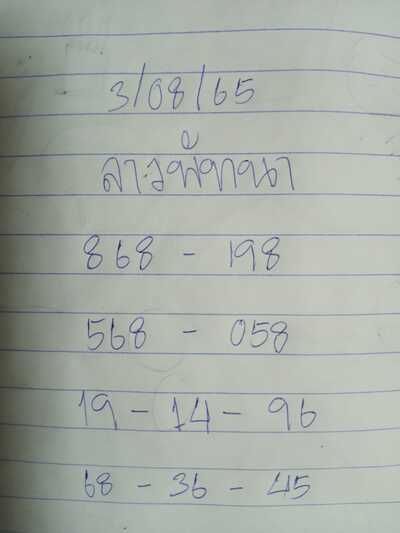 3/08/65
ลาวพัฒนา
868 - 198
568 - 058
19 - 14 - 96
68 - 36 - 45